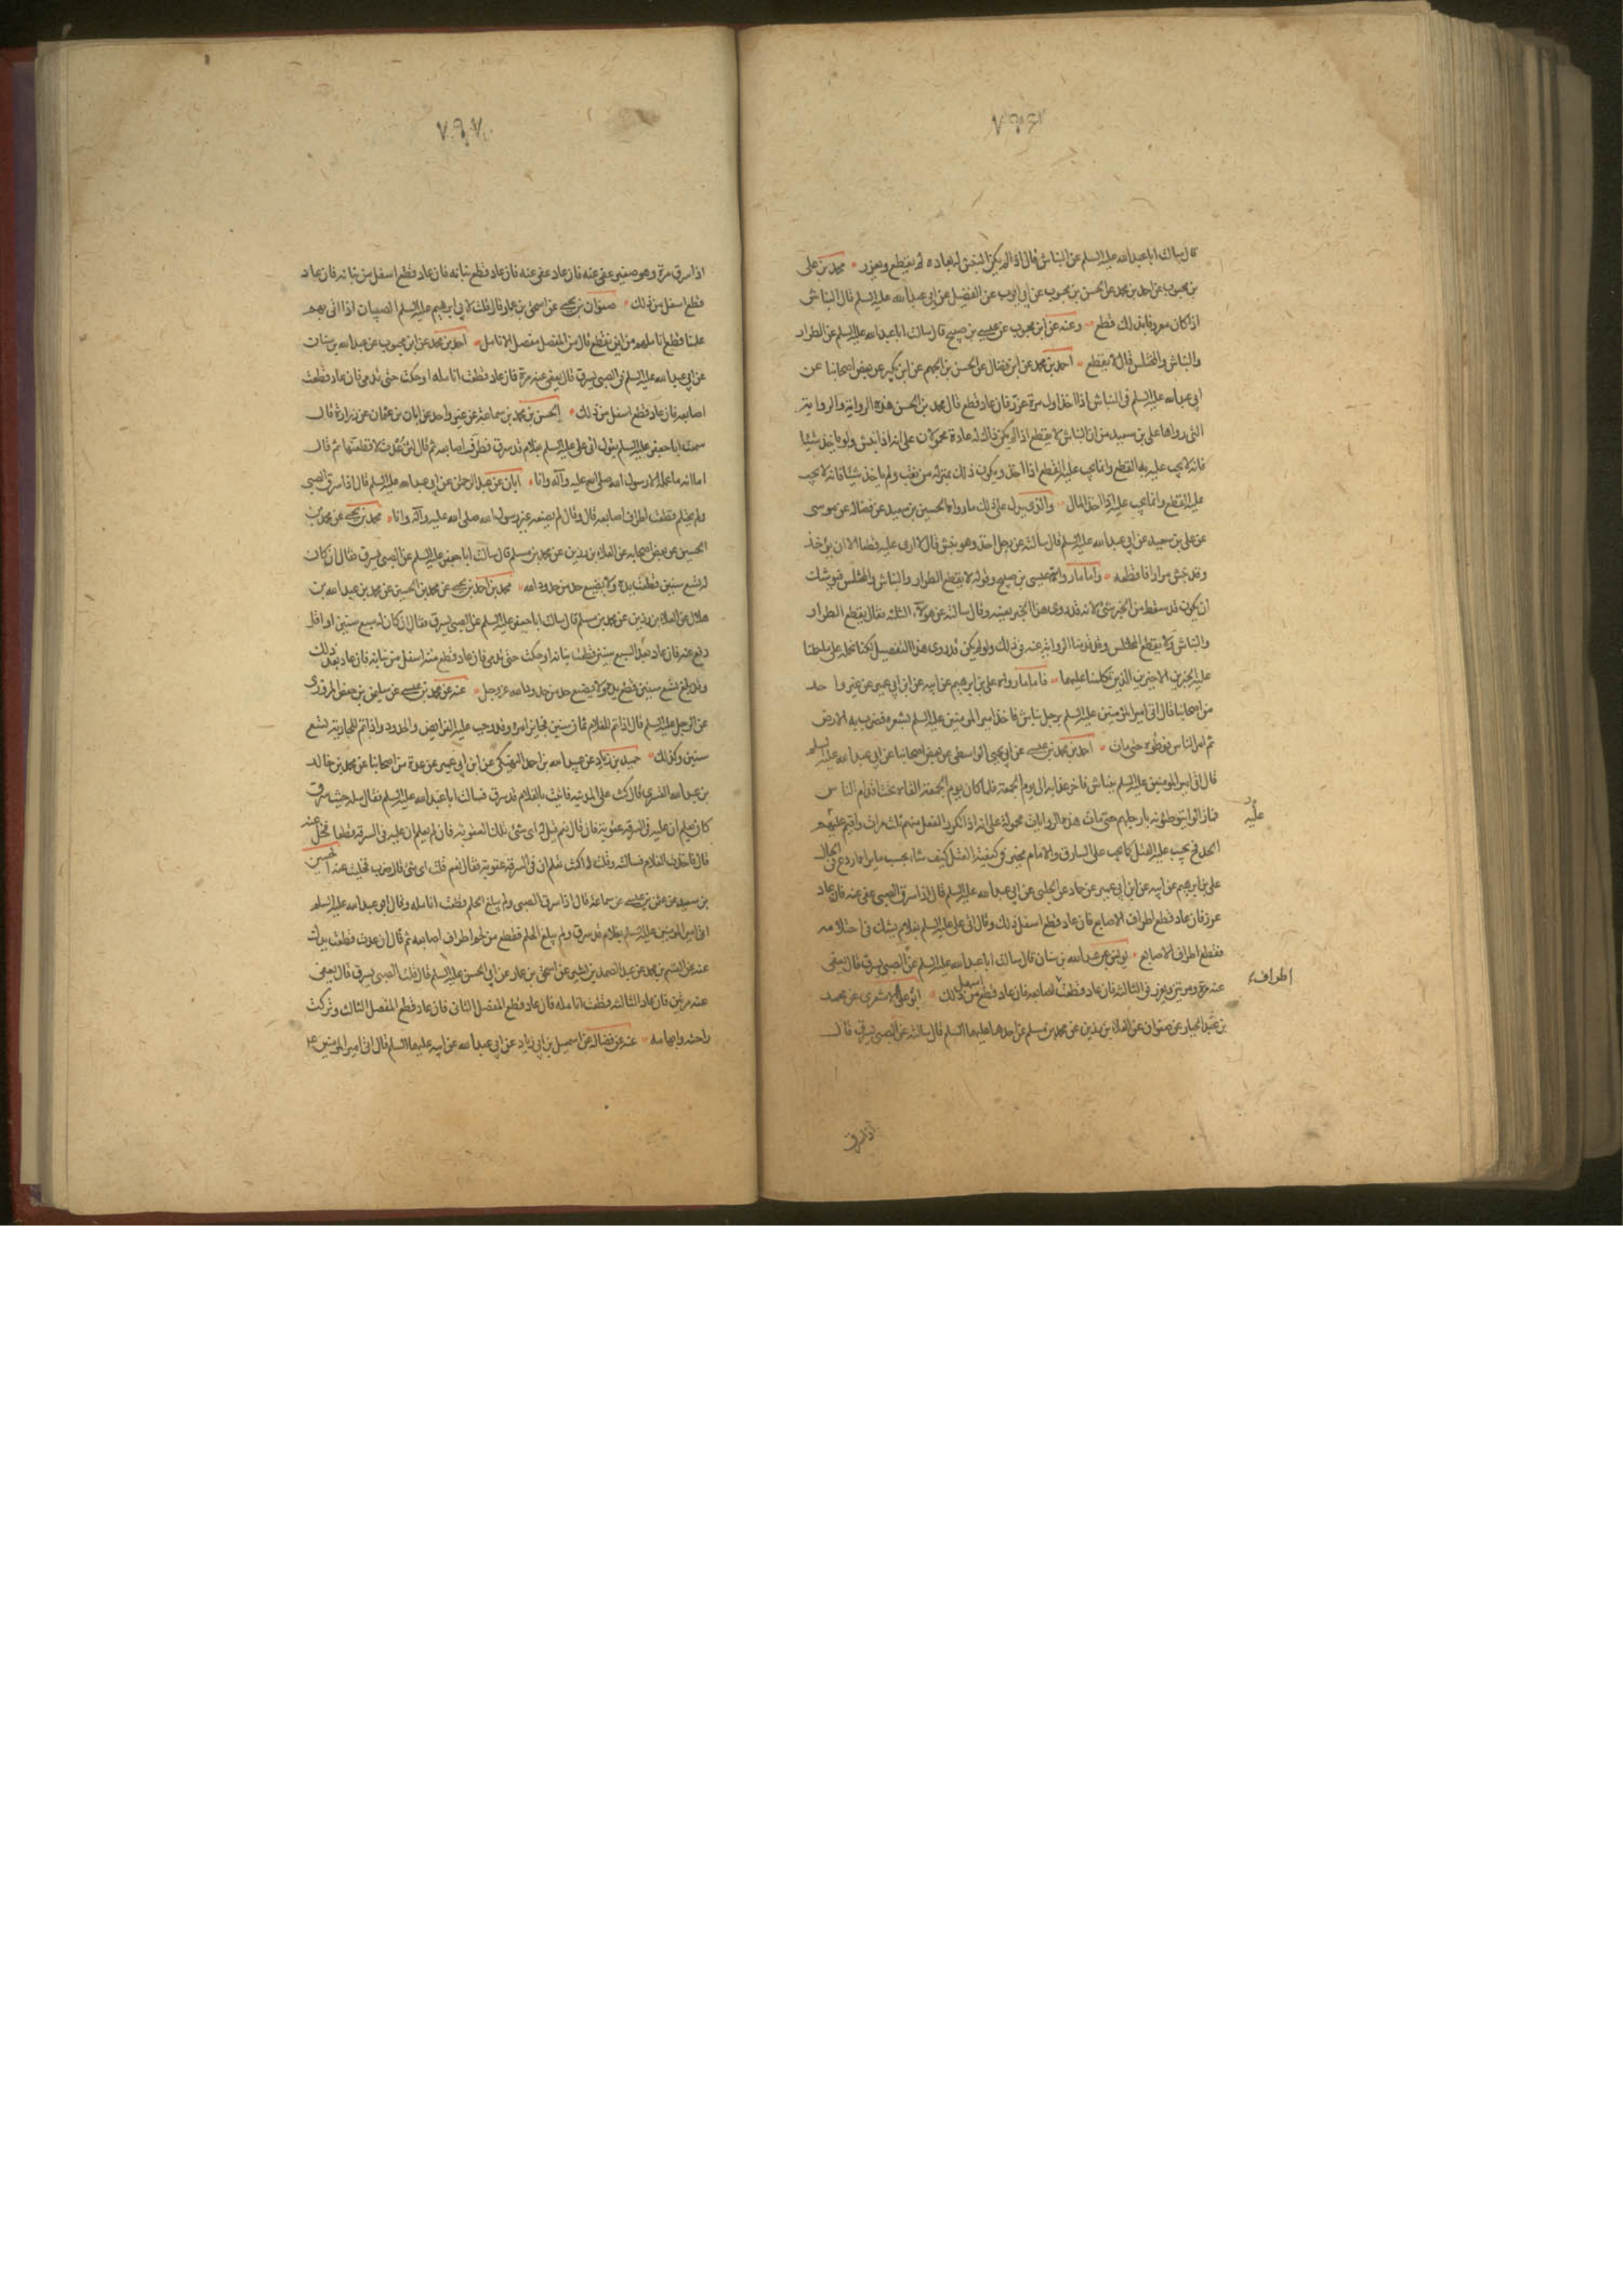 ٧٩٦
قال سالت ابا عبد الله عليه السلم عن النباش قال اذا لم يكن النبش له بعادة لم يقطع ويعزر محمد بن على
بن محبوب عن احمد بن محمد عن الحسن بن محبوب عن ابى ايوب عن الفضيل عن ابى عبد الله عليه السلم قال النباش
اذا كان معروفا بذلك قطع وعنه عن ابن محبوب عن عيسى بن صبيح قال سالت ابا عبد الله عليه السلم عن الطرار
والنباش والمختلس قال لا يقطع احمد بن محمد عن ابن فضال عن الحسن بن الجهم عن ابن بكير عن بعض اصحابنا عن
ابى عبد الله عليه السلم فى النباش اذا اخذ اول مرة عزر فان عاد قطع قال محمد بن الحسن هذه الرواية والرواية
التى رواها على بن سعيد من ان النباش لا يقطع اذا لم يكن ذلك له عادة محمولان على انه اذا نبش ولم ياخذ شيئا
فانه لا يجب عليه به القطع وانما يجب عليه القطع اذا اخذ ويكون ذلك بمنزلة من نقب ولم ياخذ شيئا فانه لا يجب
عليه القطع وانما يجب عليه اذا اخذ المال والذى يدل على ذلك ما رواه الحسين بن سعيد عن فضالة عن موسى
عن على بن سعيد عن ابى عبد الله عليه السلم قال سالته عن رجل اخذ وهو ينبش قال لا ارى عليه قطعا الا ان يؤخذ
وقد نبش مرارا فاقطعه واما ما رواه عيسى بن صبيح وقوله لا يقطع الطرار والنباش والمختلس فيوشك
ان يكون قد سقط من الخبر شئ لانه قد روى هذا الخبر بعينه وقال سالته عن هولاء الثلثه فقال يقطع الطرار
والنباش ولا يقطع المختلس وقد قدمنا الرواية عنه فى ذلك ولو لم يكن قد روى هذا التفصيل لكنا نحمله على ما حملنا
عليه الخبرين الاخيرين الذين تكلمنا عليهما فاما ما رواه على بن ابرهيم عن ابيه عن ابن ابى عمير عن غير واحد
من اصحابنا قال اتى امير المؤمنين عليه السلم برجل نباش فاخذ امير المومنين عليه السلم بشعره فضرب به الارض
ثم امر الناس فوطوه حتى مات احمد بن محمد بن عيسى عن ابى يحيى الواسطى عن بعض اصحابنا عن ابى عبد الله عليه السلم
قال اتى امير المومنين عليه السلم بنباش فاخر عذابه الى يوم الجمعة فلما كان يوم الجمعة القاه تحت اقدام الناس
فما زالوا يتوطئونه بارجلهم حتى مات هذه الروايات محمولة على انه اذا تكرر الفعل منهم ثلث مرات واقيم عليهم
عليه
الحد فح يجب عليه القتل كما يجب على السارق والامام مخير فى كيفية القتل كيف شاء بحسب ما يراه اردع فى الحال
على بن ابرهيم عن ابيه عن ابن ابى عمير عن حماد عن الحلبى عن ابى عبد الله عليه السلم قال اذا سرق الصبى عفى عنه فان عاد
عزر فان عاد قطع اطراف الاصابع فان عاد قطع اسفل ذلك وقال اتى على عليه السلم بغلام يشك فى احتلامه
فقطع اطراف الاصابع يونس عن عبد الله بن سنان قال سالت ابا عبد الله عليه السلم عن الصبى يسرق قال يعفى
عنه مرة ومرتين ويعزر فى الثالثه فان عاد قطعت اصابعه فان عاد قطع اسفل من ذلك ابو على الاشعرى عن محمد
اطراف
بن عبد الجبار عن صفوان عن العلاء بن رزين عن محمد بن مسلم عن احدهما عليهما السلم قال سالته عن الصبى يسرق قال
اذا سرق
٧٩٧
اذا سرق مرة وهو صغير عفى عنه فان عاد عفى عنه فان عاد قطع بنانه فان عاد قطع اسفل من بنانه فان عاد
قطع اسفل من ذلك صفوان بن يحيى عن اسحق بن عمار قال قلت لابى ابرهيم عليه السلم الصبيان اذا اتى بهم
علينا قطع اناملهم من اين نقطع قال من المفصل مفصل الانامل احمد بن محمد عن ابن محبوب عن عبد الله بن سنان
عن ابى عبد الله عليه السلم فى الصبى يسرق قال يعفى عنه مرة فان عاد قطعت انامله او حكت حتى تدمى فان عاد قطعت
اصابعه فان عاد قطع اسفل من ذلك الحسن بن محمد بن سماعة عن غير واحد عن ابان بن عثمان عن زرارة قال
سمعت ابا جعفر عليه السلم يقول اتى على عليه السلم بغلام قد سرق فطرف اصابعه ثم قال لئن عدت لاقطعنها ثم قال
اما انه ما عمله الا رسول الله صلى الله عليه وآله وانا ابان عن عبد الرحمن عن ابى عبد الله عليه السلم قال اذا سرق الصبى
ولم يحتلم قطعت اطراف اصابعه قال وقال لم يصنعه غير رسول الله صلى الله عليه وآله وانا محمد بن يحيى عن محمد بن
الحسين عن بعض اصحابه عن العلاء بن رزين عن محمد بن مسلم قال سالت ابا جعفر عليه السلم عن الصبى يسرق فقال ان كان
له تسع سنين قطعت يده ولا يضيع حد من حدود الله محمد بن احمد بن يحيى عن محمد بن الحسين عن محمد بن عبد الله بن
هلال عن العلاء بن رزين عن محمد بن مسلم قال سالت ابا جعفر عليه السلم عن الصبى يسرق فقال ان كان له سبع سنين او اقل
رفع عنه فان عاد بعد السبع سنين قطعت بنانه او حكت حتى تدمى فان عاد قطع منه اسفل من بنانه فان عاد بعد ذلك
وقد بلغ تسع سنين قطع يده ولا يضيع حد من حدود الله عز وجل عنه عن محمد بن عيسى عن سليمن بن حفص المروزى
عن الرجل عليه السلم قال اذا تم للغلام ثمان سنين فجايز امره وقد وجب عليه الفرايض والحدود واذا تم للجارية تسع
سنين وكذلك حميد بن زياد عن عبيد الله بن احمد النهيكى عن ابن ابى عمير عن عدة من اصحابنا عن محمد بن خالد
بن عبد الله القسرى قال كنت على المدينه فاتيت بالغلام قد سرق فسالت ابا عبد الله عليه السلم فقال سله حيث سرق
كان يعلم ان عليه فى السرقه عقوبة فان قال نعم قيل له اى شئ تلك العقوبة فان لم يعلم ان عليه فى السرقه قطعا فخل عنه
قال فاخذت الغلام فسالته وقلت له اكنت تعلم ان فى السرقه عقوبة فقال نعم قلت اى شئ قال الضرب فخليت عنه الحسين
بن سعيد عن عثمن بن عيسى عن سماعة قال اذا سرق الصبى ولم يبلغ الحلم قطعت انامله وقال ابو عبد الله عليه السلم
اتى امير المومنين عليه السلم بغلام قد سرق ولم يبلغ الحلم فقطع من لحم اطراف اصابعه ثم قال ان عدت قطعت يدك
عنه عن القسم بن محمد عن عبد الصمد بن بشير عن اسحق بن عمار عن ابى الحسن عليه السلم قال قلت الصبى يسرق قال يعفى
عنه مرتين فان عاد الثالثه قطعت انامله فان عاد قطع المفصل الثانى فان عاد قطع المفصل الثالث وتركت
راحته وابهامه عنه عن فضالة عن اسمعيل بن ابى زياد عن ابى عبد الله عن ابيه عليهما السلم قال اتى امير المومنين ع